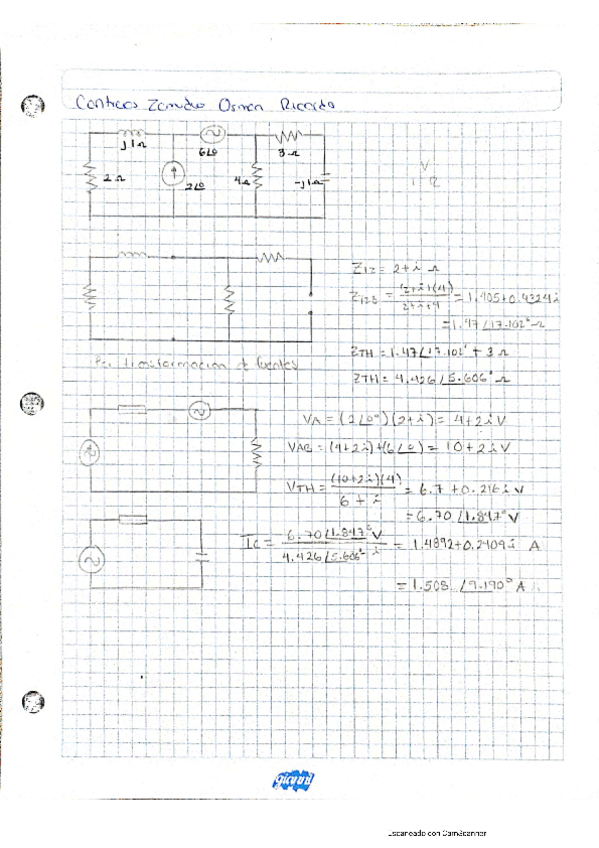 Contreras Zamudio Osman Ricardo
j1Ω
6∠0
3Ω
2Ω
2∠0
4Ω
-j1Ω
V
I R
Z12 = 2+i Ω
Z123 = (2+i)(4) / 2+i+4 = 1.405+0.4324i
= 1.47∠17.102° Ω
ZTH = 1.47∠17.102° + 3 Ω
ZTH = 4.426∠5.606° Ω
Por transformacion de fuentes
VA = (2∠0°)(2+i) = 4+2i V
VAB = (4+2i)+(6∠0) = 10+2i V
VTH = (10+2i)(4) / 6+i = 6.7+0.216i V
= 6.70∠1.847° V
IC = 6.70∠1.847° V / 4.426∠5.606° - i = 1.4892+0.2409i A
= 1.508∠9.190° A
Escaneado con CamScanner